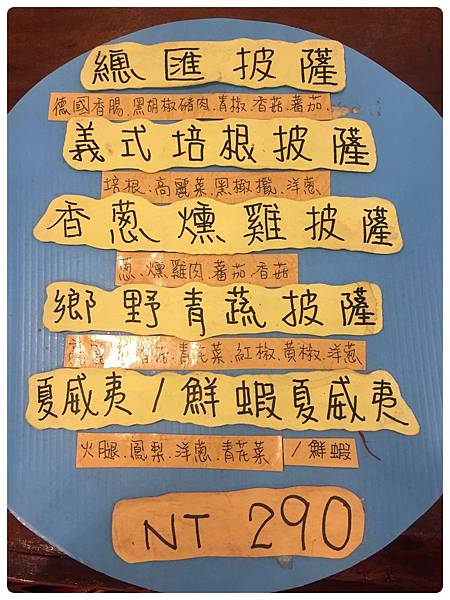 總匯披薩
德國香腸.黑胡椒豬肉.青椒.香菇.蕃茄.
義式培根披薩
培根.高麗菜.黑橄欖.洋蔥
香蔥燻雞披薩
蔥.燻雞肉.蕃茄.香菇
鄉野青蔬披薩
青花菜.紅椒.黃椒.洋蔥
夏威夷/鮮蝦夏威夷
火腿.鳳梨.洋蔥.青花菜 /鮮蝦
NT 290